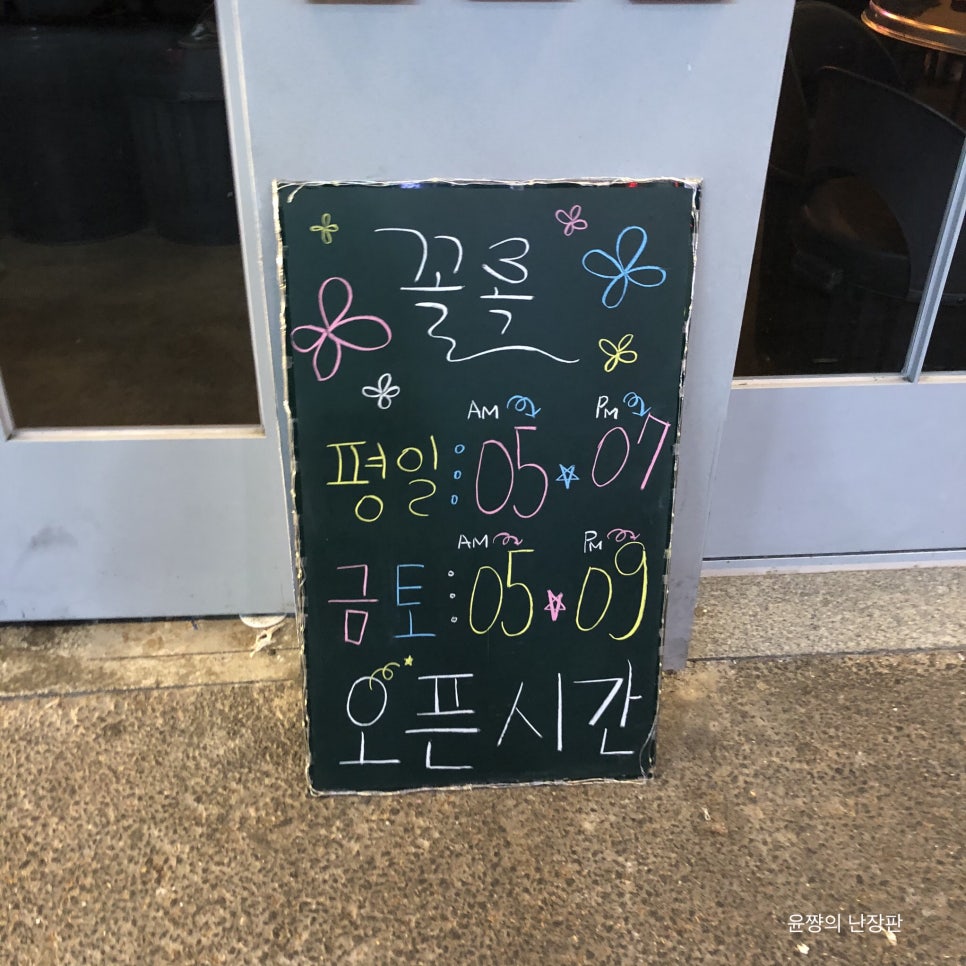 꼴록
AM PM
평일 : 05 ☆ 07
AM PM
금토 : 05 ☆ 09
오픈시간
윤쨩의 난장판